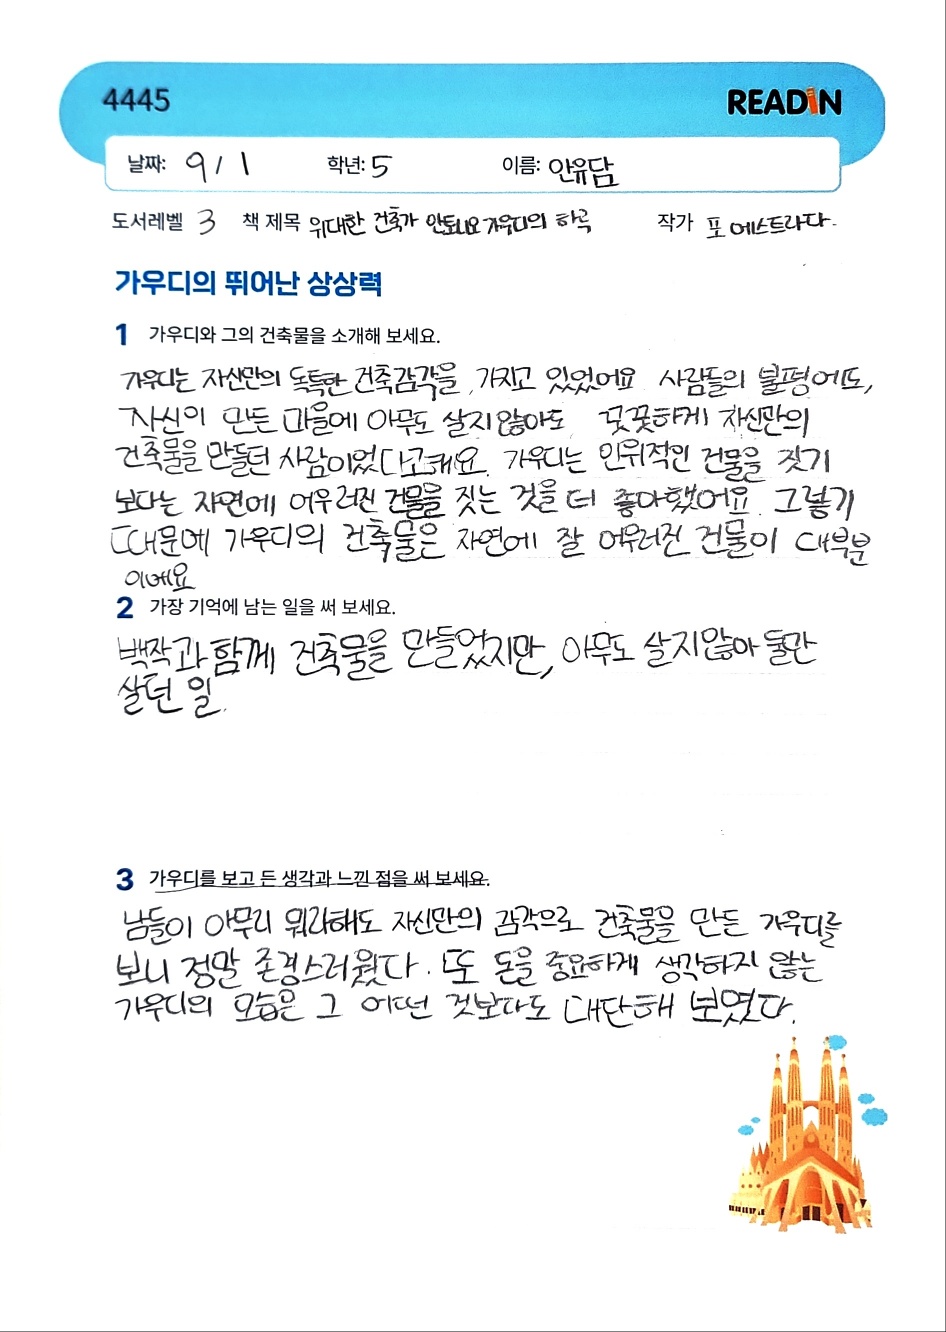 4445
READIN
날짜: 9/1 학년: 5 이름: 안유담
도서레벨 3 책 제목 위대한 건축가 안토니오 가우디의 하루 작가 포 에스트라다.
가우디의 뛰어난 상상력
1 가우디와 그의 건축물을 소개해 보세요.
가우디는 자신만의 독특한 건축감각을 가지고 있었어요. 사람들의 불평에도,
자신이 만든 마을에 아무도 살지않아도 꿋꿋하게 자신만의
건축물을 만들던 사람이었다고해요. 가우디는 인위적인 건물을 짓기
보다는 자연에 어우러진 건물을 짓는 것을 더 좋아했어요. 그렇기
때문에 가우디의 건축물은 자연에 잘 어우러진 건물이 대부분
이에요
2 가장 기억에 남는 일을 써 보세요.
백작과 함께 건축물을 만들었지만, 아무도 살지않아 둘만
살던 일.
3 가우디를 보고 든 생각과 느낀 점을 써 보세요.
남들이 아무리 뭐라해도 자신만의 감각으로 건축물을 만든 가우디를
보니 정말 존경스러웠다. 또 돈을 중요하게 생각하지 않는
가우디의 모습은 그 어떤 것보다도 대단해 보였다.